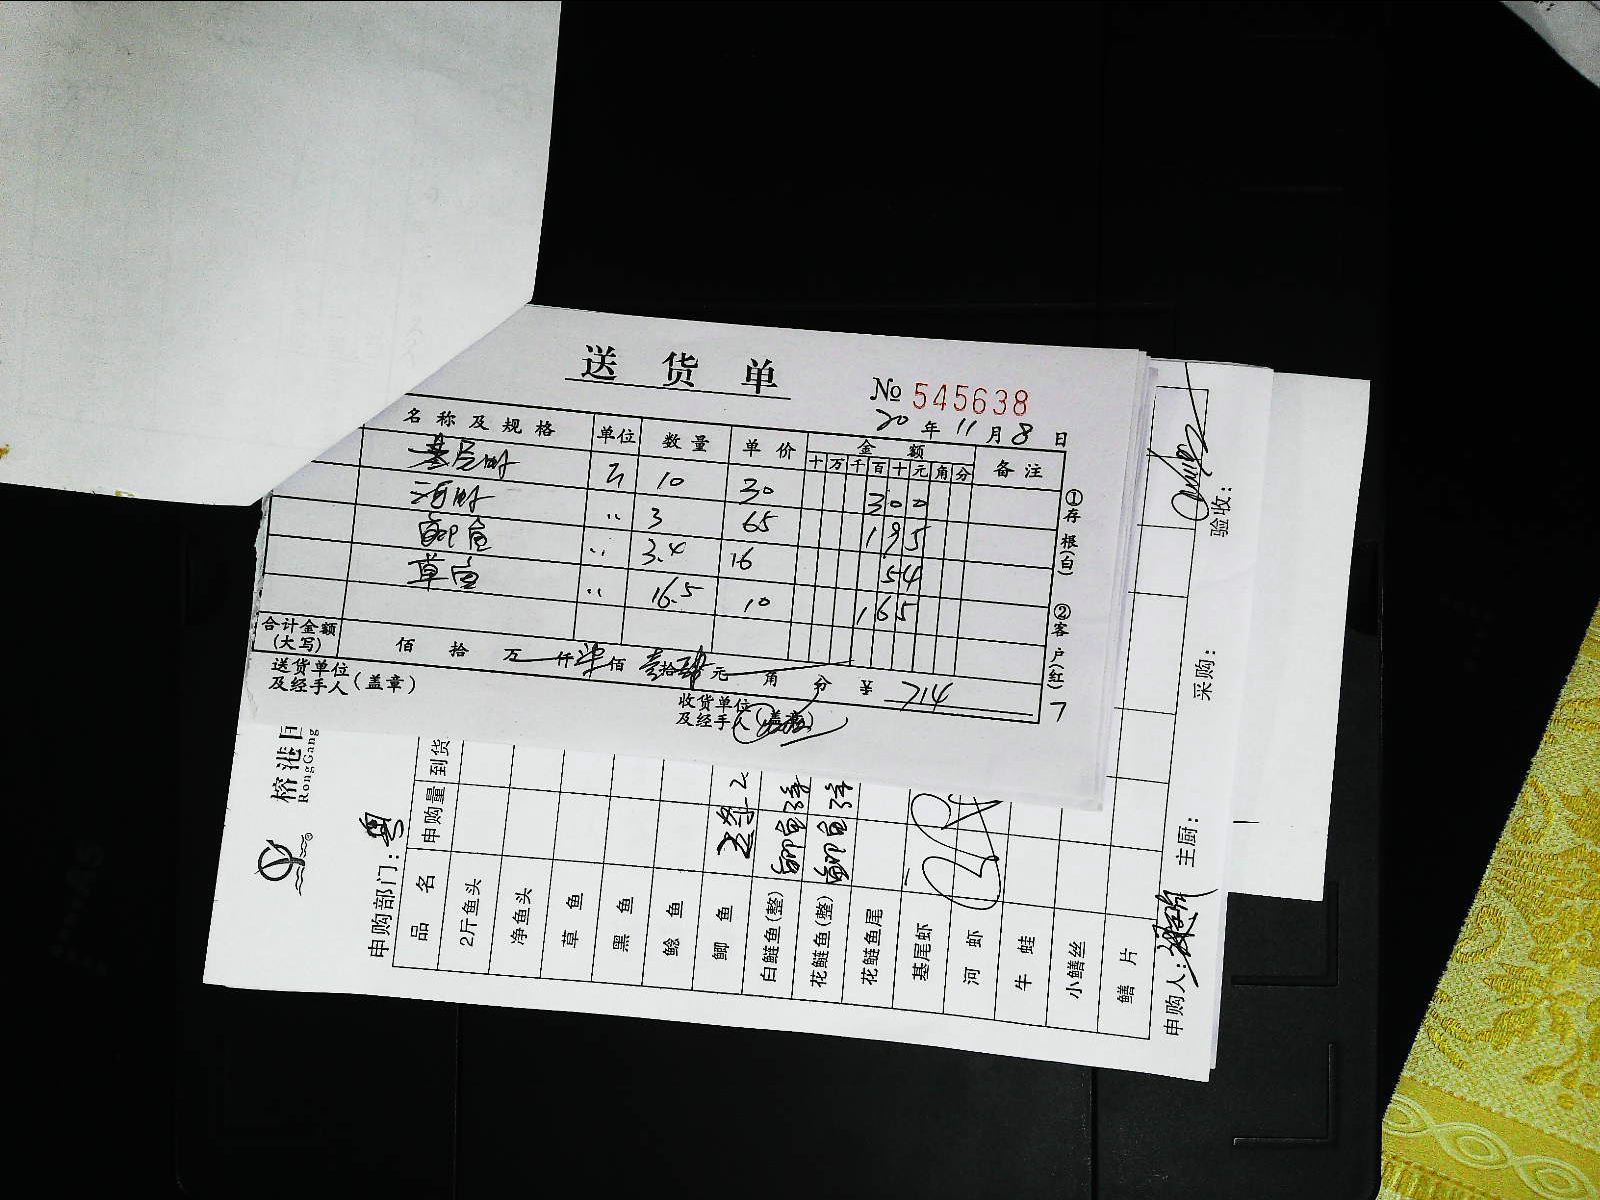 送货单
№ 545638
20 年 11 月 8 日
名称及规格 单位 数量 单价 金额 备注
十 万 千 百 十 元 角 分
基尾虾 斤 10 30 300
河虾 〃 3 65 195
〃 3.4 16 54
草鱼 〃 16.5 10 165
合计金额(大写) 佰 拾 万 仟 柒 佰 壹 拾 肆 元 角 分 ¥ 714
送货单位及经手人(盖章)
收货单位及经手人(盖章)
①存根(白) ②客户(红)
7
榕港
RongGang
申购部门: 粤
品名 申购量 到货
2斤鱼头
净鱼头
草鱼
黑鱼
鲶鱼
鲫鱼
白鲢鱼(整)
花鲢鱼(整)
花鲢鱼尾
基尾虾
河虾
牛蛙
小鳝丝
鳝片
申购人:
主厨:
采购:
验收: